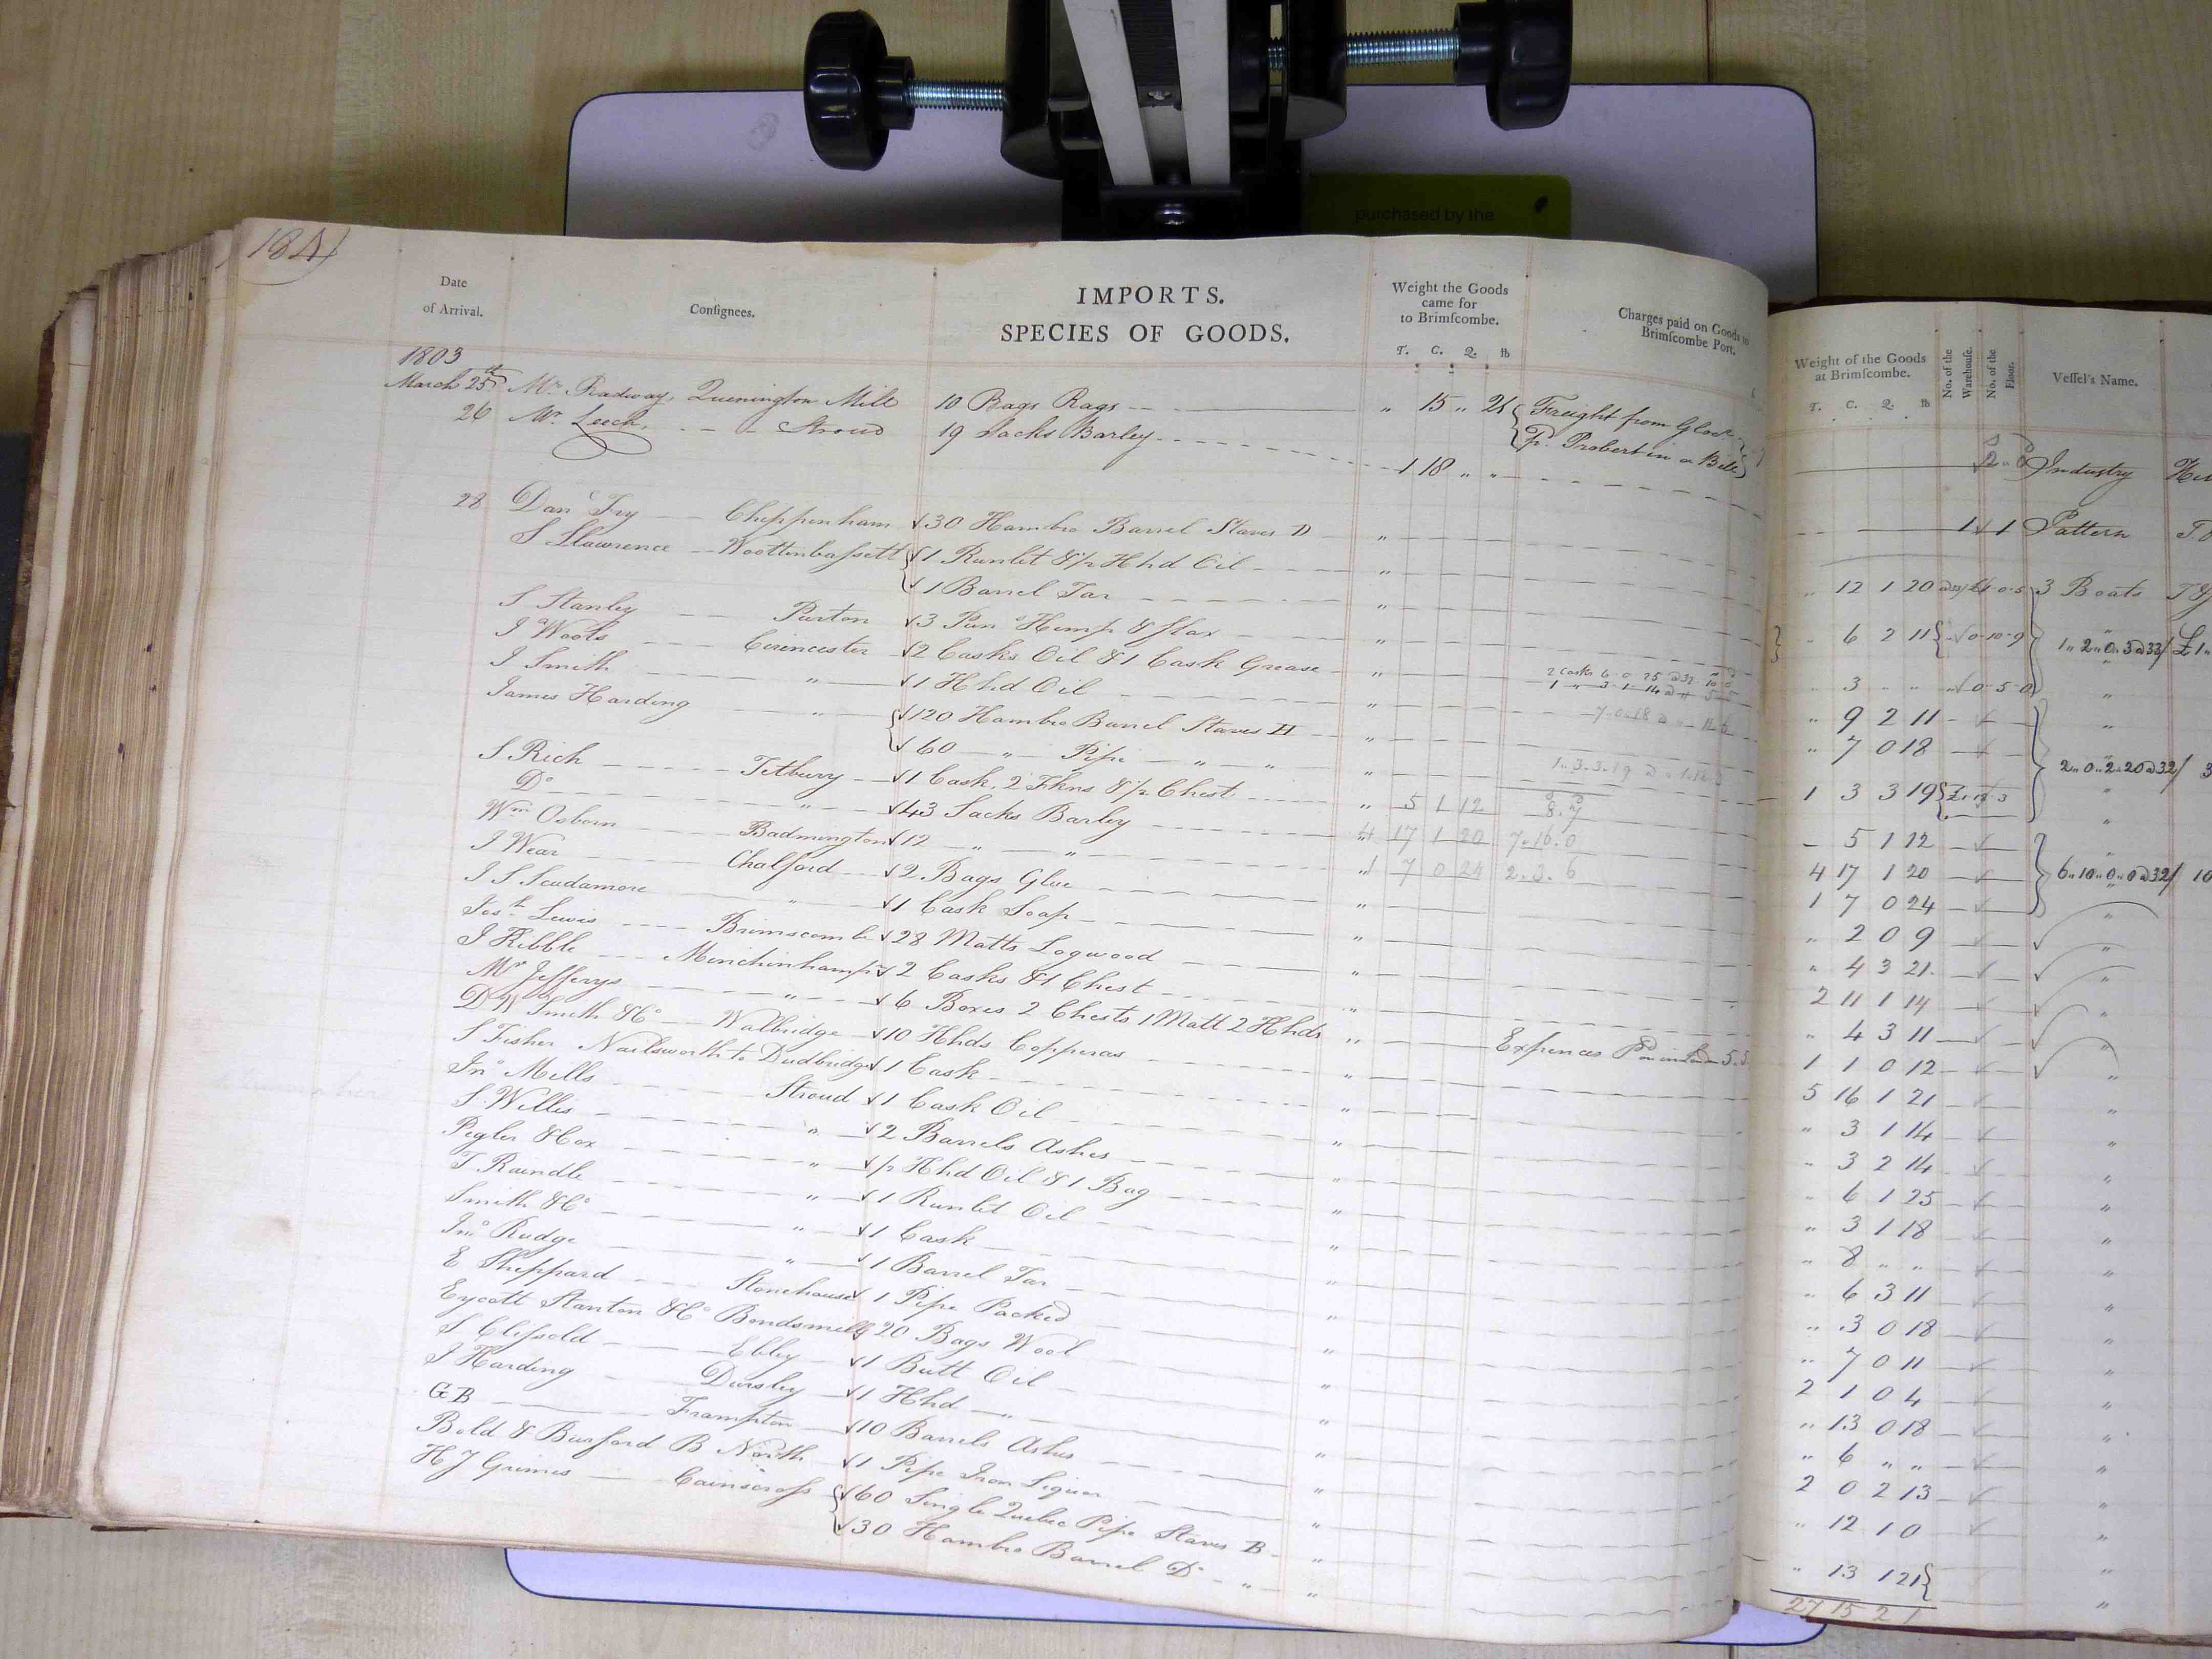 purchased by the
184
Date
of Arrival.
Consignees.
IMPORTS.
SPECIES OF GOODS.
Weight the Goods
came for
to Brimscombe.
T. C. Q. lb
Charges paid on Goods to
Brimscombe Port.
Weight of the Goods
at Brimscombe.
T. C. Q. lb
No. of the
Warehouse.
No. of the
Floor.
Vessel's Name.
1803
March 25th Mr. Radway, Quenington Mill 10 Bags Rags " 15 " 21 { Freight from Glos
pr. Probert in a Bill Industry
26 Mr. Leech, Stroud 19 Sacks Barley 1 18 " " 1 1 Pattern
28 Danl Fry Chippenham 30 Hambro Barrel Staves D " " 12 1 20 3 Boats
S Llawrence Woottenbassett { 1 Runlet & 1/2 Hhd Oil " " 6 2 11 0-10-9 1 " 2 " 0 " 3 @ 33/ £1
1 Barrel Tar "
S Stanley Purton 3 Pun Hemp & flax " " 3 " " 0-5-0 "
J Woots Cirencester 2 Casks Oil & 1 Cask Grease " 2 Casks 6 0 25 " 9 2 11 "
J Smith " 1 Hhd Oil " " 7 0 18
James Harding " { 120 Hambro Barrel Staves H " 1 3 3 19 2 " 0 " 2 " 20 @ 32/ 3
60 " Pipe " " "
S Rich Tetbury 1 Cask, 2 Fkns & 1/2 Chest " 5 1 12 8.7 - 5 1 12
Do " 43 Sacks Barley 4 17 1 20 7.16.0 4 17 1 20 6 " 10 " 0 " 0 @ 32/ 10
Wm Osborn Badmington 12 " " 1 7 0 24 2.3.6 1 7 0 24 "
J Wear Chalford 2 Bags Glue " " 2 0 9 "
J S Scudamore " 1 Cask Soap " " 4 3 21 "
Josh Lewis Brimscomb 28 Matts Logwood " 2 11 1 14 "
J Kibble Minchinhampn 2 Casks & 1 Chest " " 4 3 11 "
Mr Jefferys " 6 Boxes 2 Chests 1 Matt 2 Hhds " Expences Pd 1 1 0 12 "
D W Smith & Co Walbridge 10 Hhds Copperas " 5 16 1 21 "
S Fisher Nailsworth to Dudbridge 1 Cask " " 3 1 14 "
Jno Mills Stroud 1 Cask Oil " " 3 2 14 "
S. Willis " 2 Barrels Ashes " " 6 1 25 "
Pegler & Cox " 1/2 Hhd Oil & 1 Bag " " 3 1 18 "
T Raindle " 1 Runlet Oil " " 8 " " "
Smith & Co " 1 Cask " " 6 3 11 "
Jno Rudge " 1 Barrel Tar " " 3 0 18 "
E Sheppard Stonehouse 1 Pipe Packed " " 7 0 11 "
Eycott Stanton & Co Bondsmill 20 Bags Wool " 2 1 0 4 "
S Clissold Ebley 1 Butt Oil " " 13 0 18 "
J Harding Dursley 1 Hhd " " " 6 " " "
GB Frampton 10 Barrels Ashes " 2 0 2 13 "
Bold & Burford B North 1 Pipe Iron Liquor " " 12 1 0 "
H J Grimes Cainscross { 60 Single Quebec Pipe Staves B " " 13 1 21 "
30 Hambro Barrel Do " "
27 15 2 1